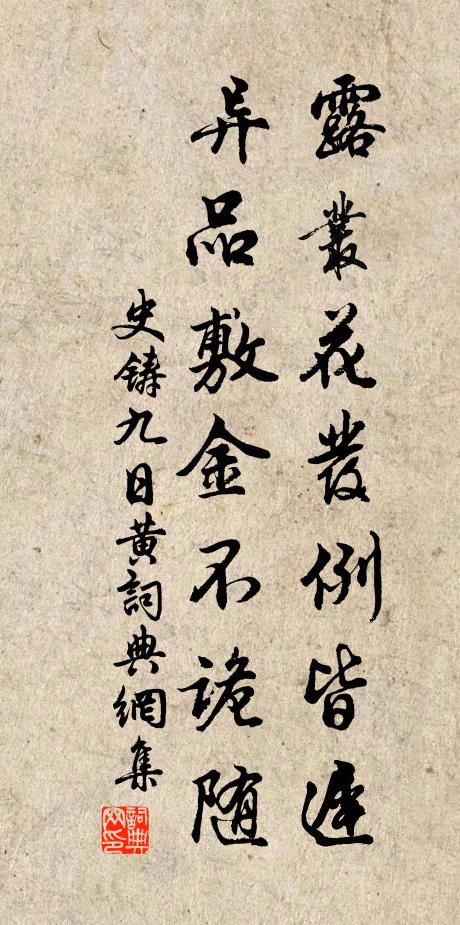 露叢花發例皆遲
异品敷金不詭随
史鑄九日黄詞典網集
詞典网印